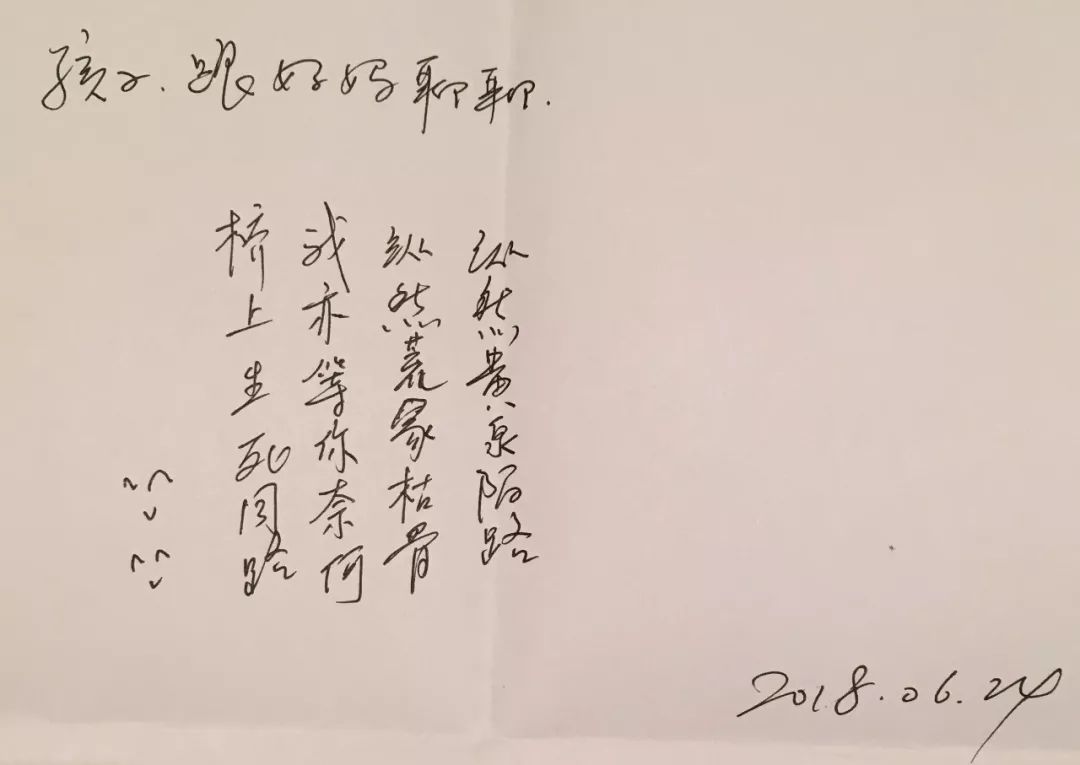 孩子.跟好妈聊聊.
纵然黄泉陌路
纵然荒冢枯骨
我亦等你奈何
桥上生死同路
2018.06.24